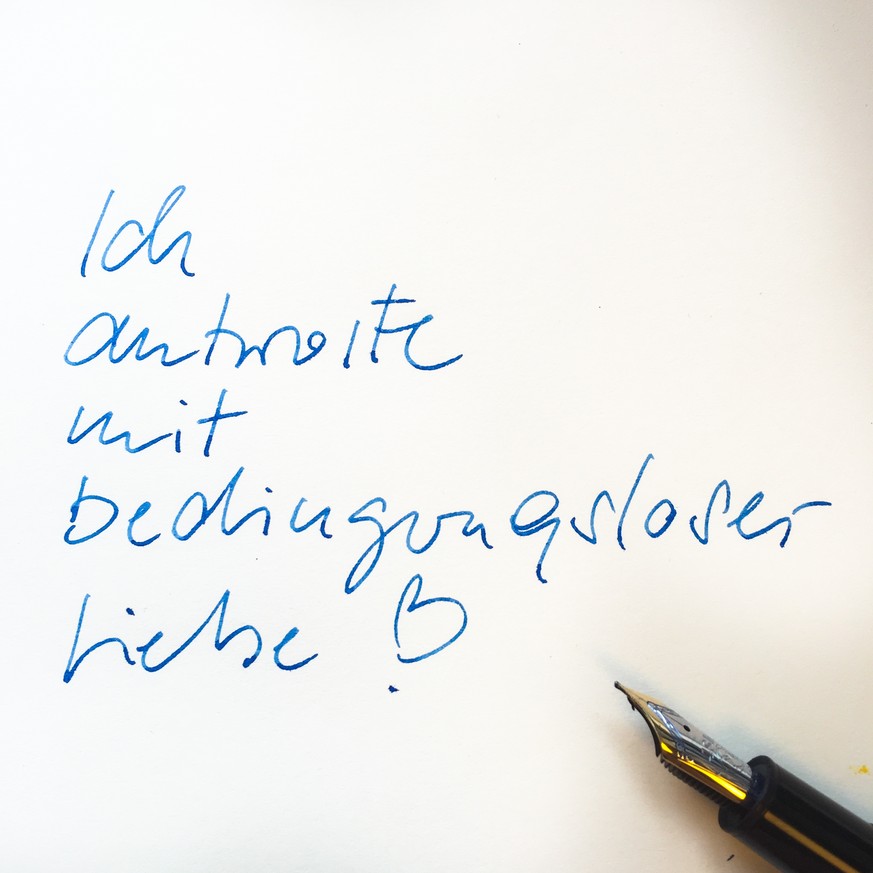 Ich
antworte
mit
bedingungsloser
Liebe